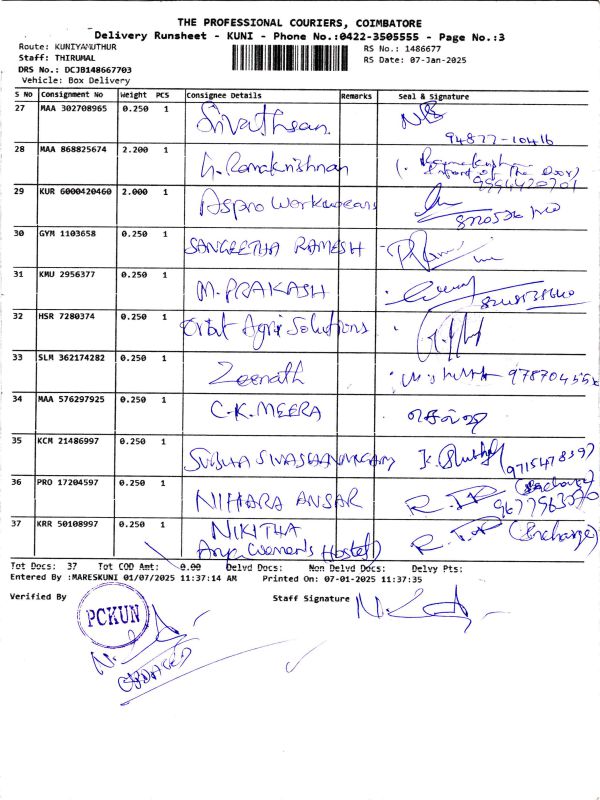 THE PROFESSIONAL COURIERS, COIMBATORE
Delivery Runsheet - KUNI - Phone No.:0422-3505555 - Page No.:3
Route: KUNIYAMUTHUR RS No.: 1486677
Staff: THIRUMAL RS Date: 07-Jan-2025
DRS No.: DCJB148667703
Vehicle: Box Delivery
S No Consignment No Weight PCS Consignee Details Remarks Seal & Signature
27 MAA 302708965 0.250 1 Srivathsan
94877-10416
28 MAA 868825674 2.200 1 G. Ramakrishnan
(Infront of The Door)
9994420701
29 KUR 6000420460 2.000 1 Aspro Workwears
30 GYM 1103658 0.250 1 SANGEETHA RAMESH
31 KMU 2956377 0.250 1 M. PRAKASH
32 HSR 7280374 0.250 1 Orbit Agri Solutions
33 SLM 362174282 0.250 1 Zeenath
34 MAA 576297925 0.250 1 C.K. MEERA
35 KCM 21486997 0.250 1 SUBHA SIVASHANMUGAM
36 PRO 17204597 0.250 1 NIHARA ANSAR (Incharge)
37 KRR 50108997 0.250 1 NIKITHA (Incharge)
Women's Hostel)
Tot Docs: 37 Tot COD Amt: 0.00 Delvd Docs: Non Delvd Docs: Delvy Pts:
Entered By :MARESKUNI 01/07/2025 11:37:14 AM Printed On: 07-01-2025 11:37:35
Verified By Staff Signature
PCKUN
UPDATED